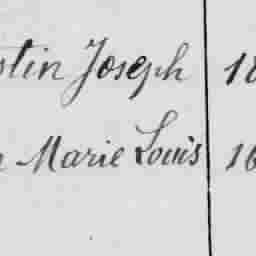 stin Joseph 18
Marie Louis 16